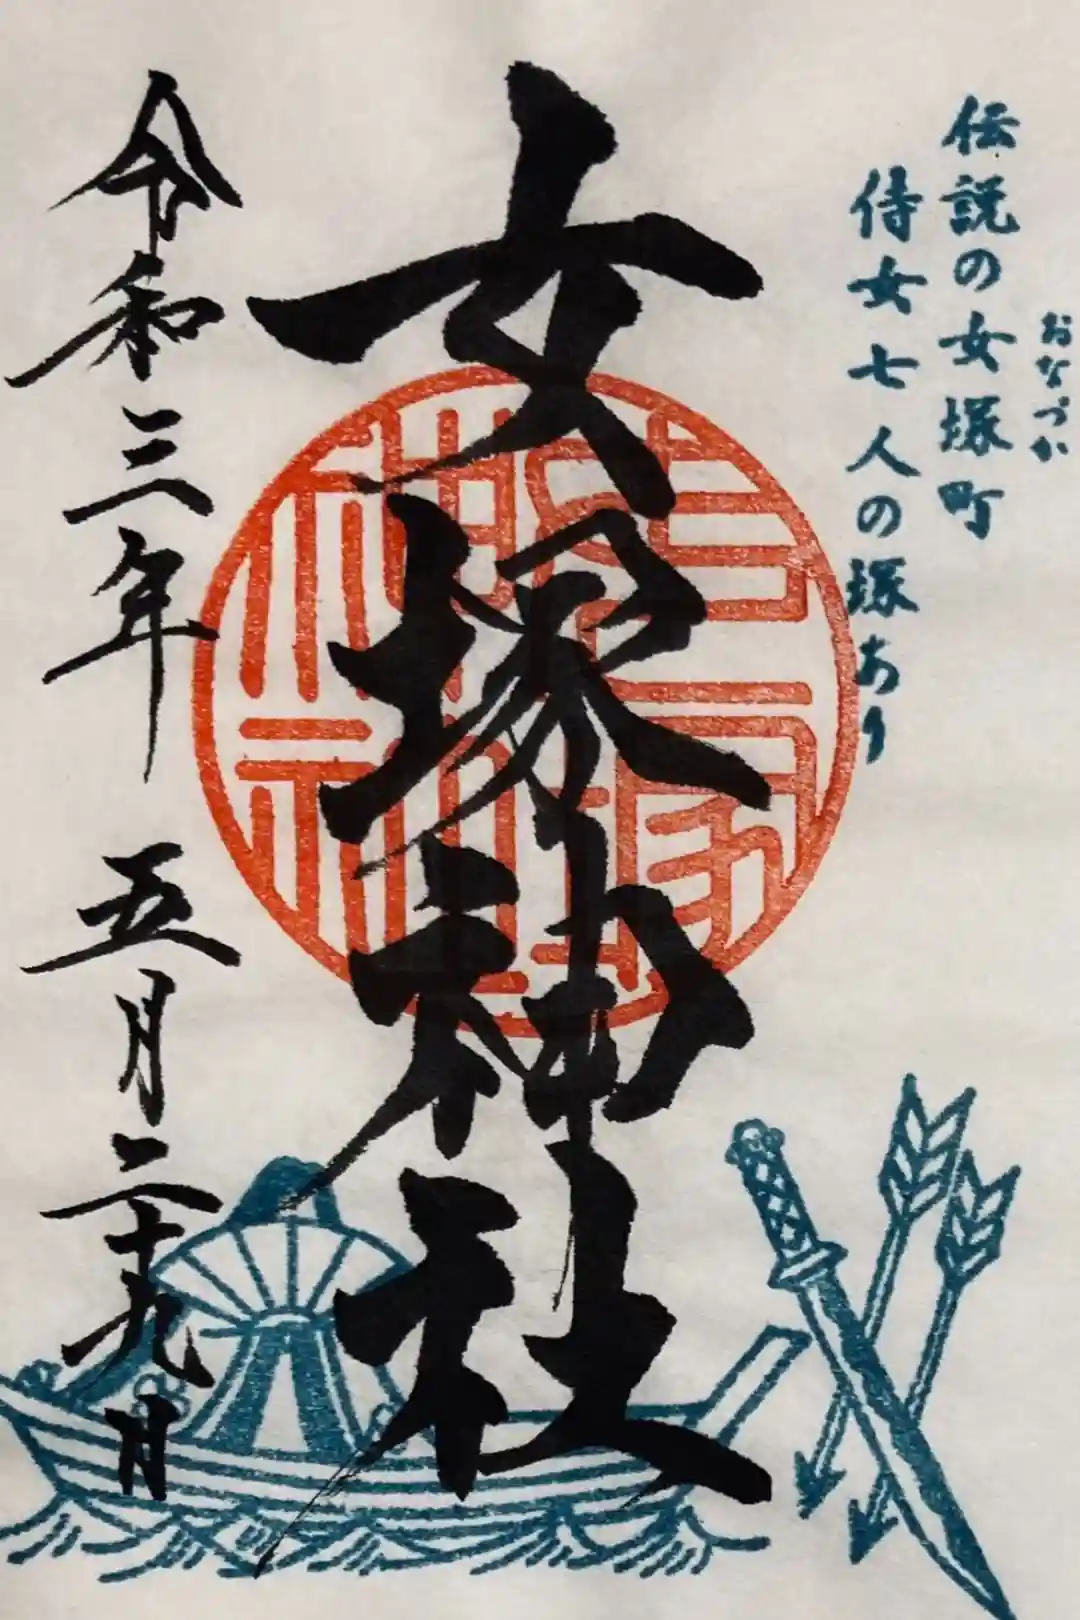 おなづか
伝説の女塚町
侍女七人の塚あり
女塚神社
女塚神社
令和三年 五月二十九日